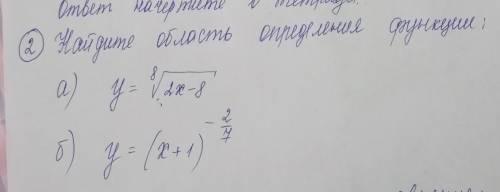 ответ начертите в тетради.
② Найдите область определения функции:
а) y = ⁸√(2x-8)
б) y = (x+1)^(-2/7)